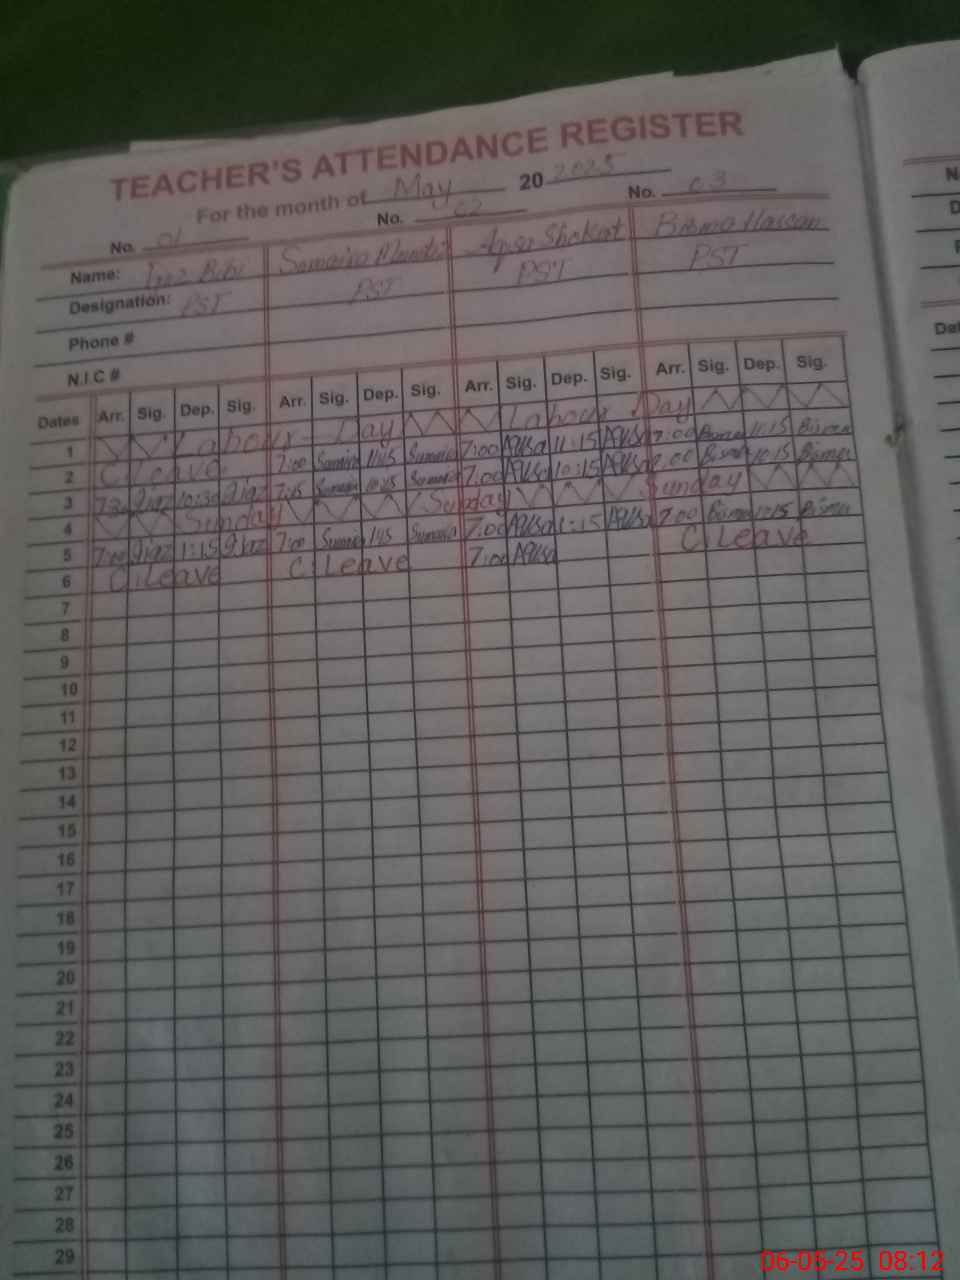 TEACHER'S ATTENDANCE REGISTER
For the month of May 20 2025
No. 01 No. 02 No. 03
Name: Bibi Samaira Shakat Bisma Hassan
Designation: PST PST PST PST
Phone #
N.I.C #
Dates Arr. Sig. Dep. Sig. Arr. Sig. Dep. Sig. Arr. Sig. Dep. Sig. Arr. Sig. Dep. Sig.
1 Labour Day Labour Day
2 C Leave 7:00 Sumaira 11:45 Sumaira 7:00 11:15 7:00 Bisma 11:15 Bisma
3 7:30 10:30 7:15 Sumaira 10:45 Sumaira 7:00 10:15 7:00 Bisma 10:15 Bisma
4 Sunday Sunday Sunday
5 7:00 1:15 7:00 Sumaira 1:45 Sumaira 7:00 1:15 7:00 Bisma Bisma
6 C:Leave C:Leave 7:00 C:Leave
7
8
9
10
11
12
13
14
15
16
17
18
19
20
21
22
23
24
25
26
27
28
29
Dat
06-05-25 08:12